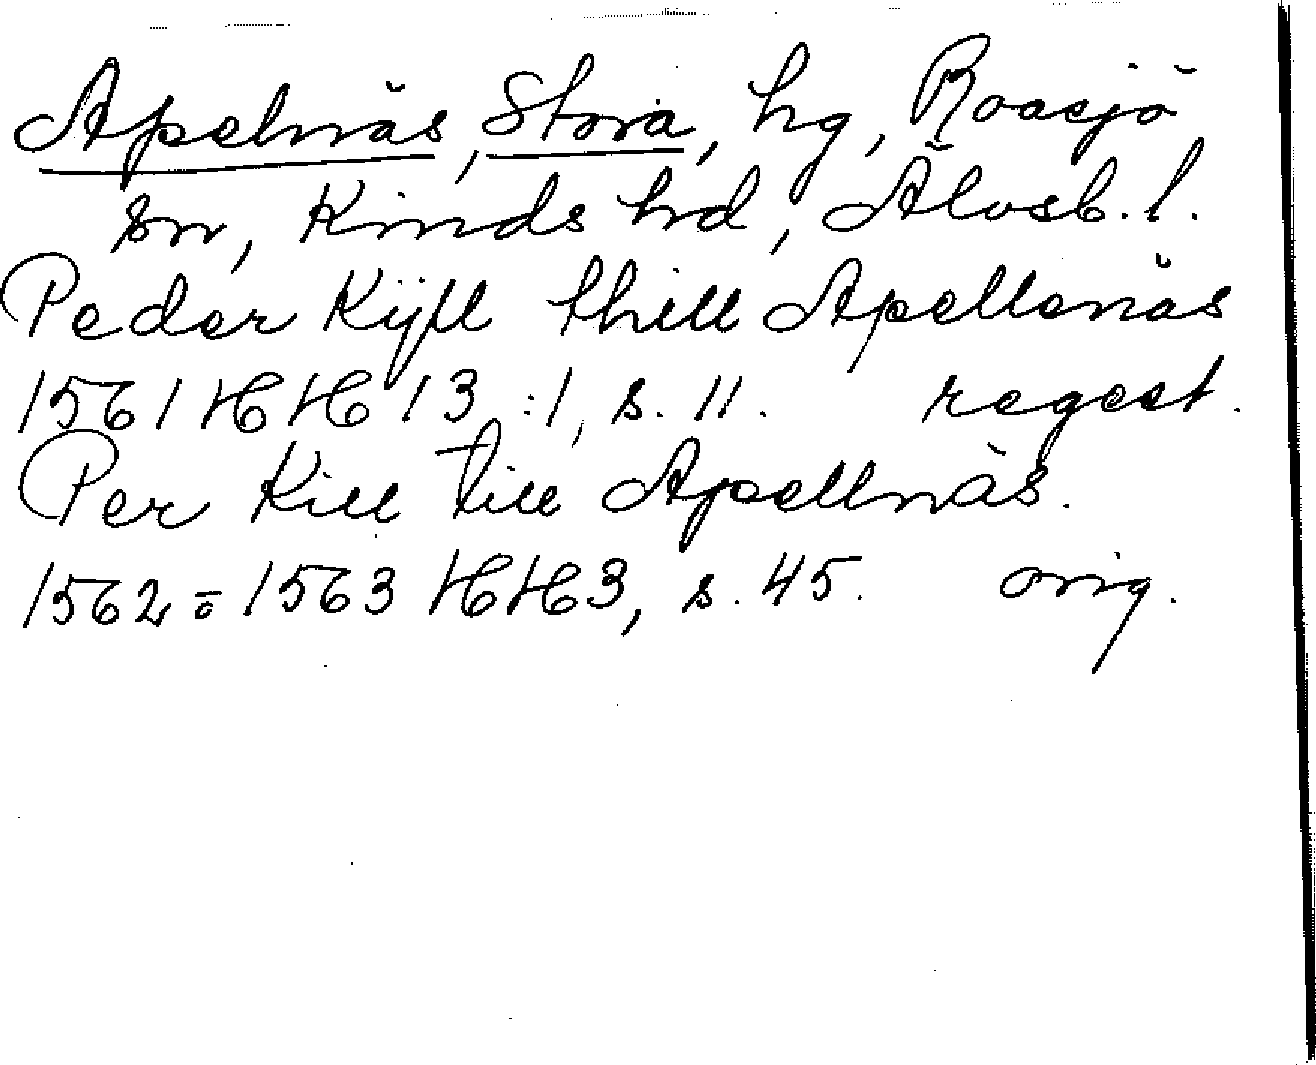 Apelnäs, Stora, hg, Roasjö
sn, Kinds hd, Älvsb. l.
Peder Kijll thill Apellenäs
1561 HH 13:1, s. 11. regest.
Per Kill till Apellnäs.
1562 = 1563 HH 3, s. 45. orig.